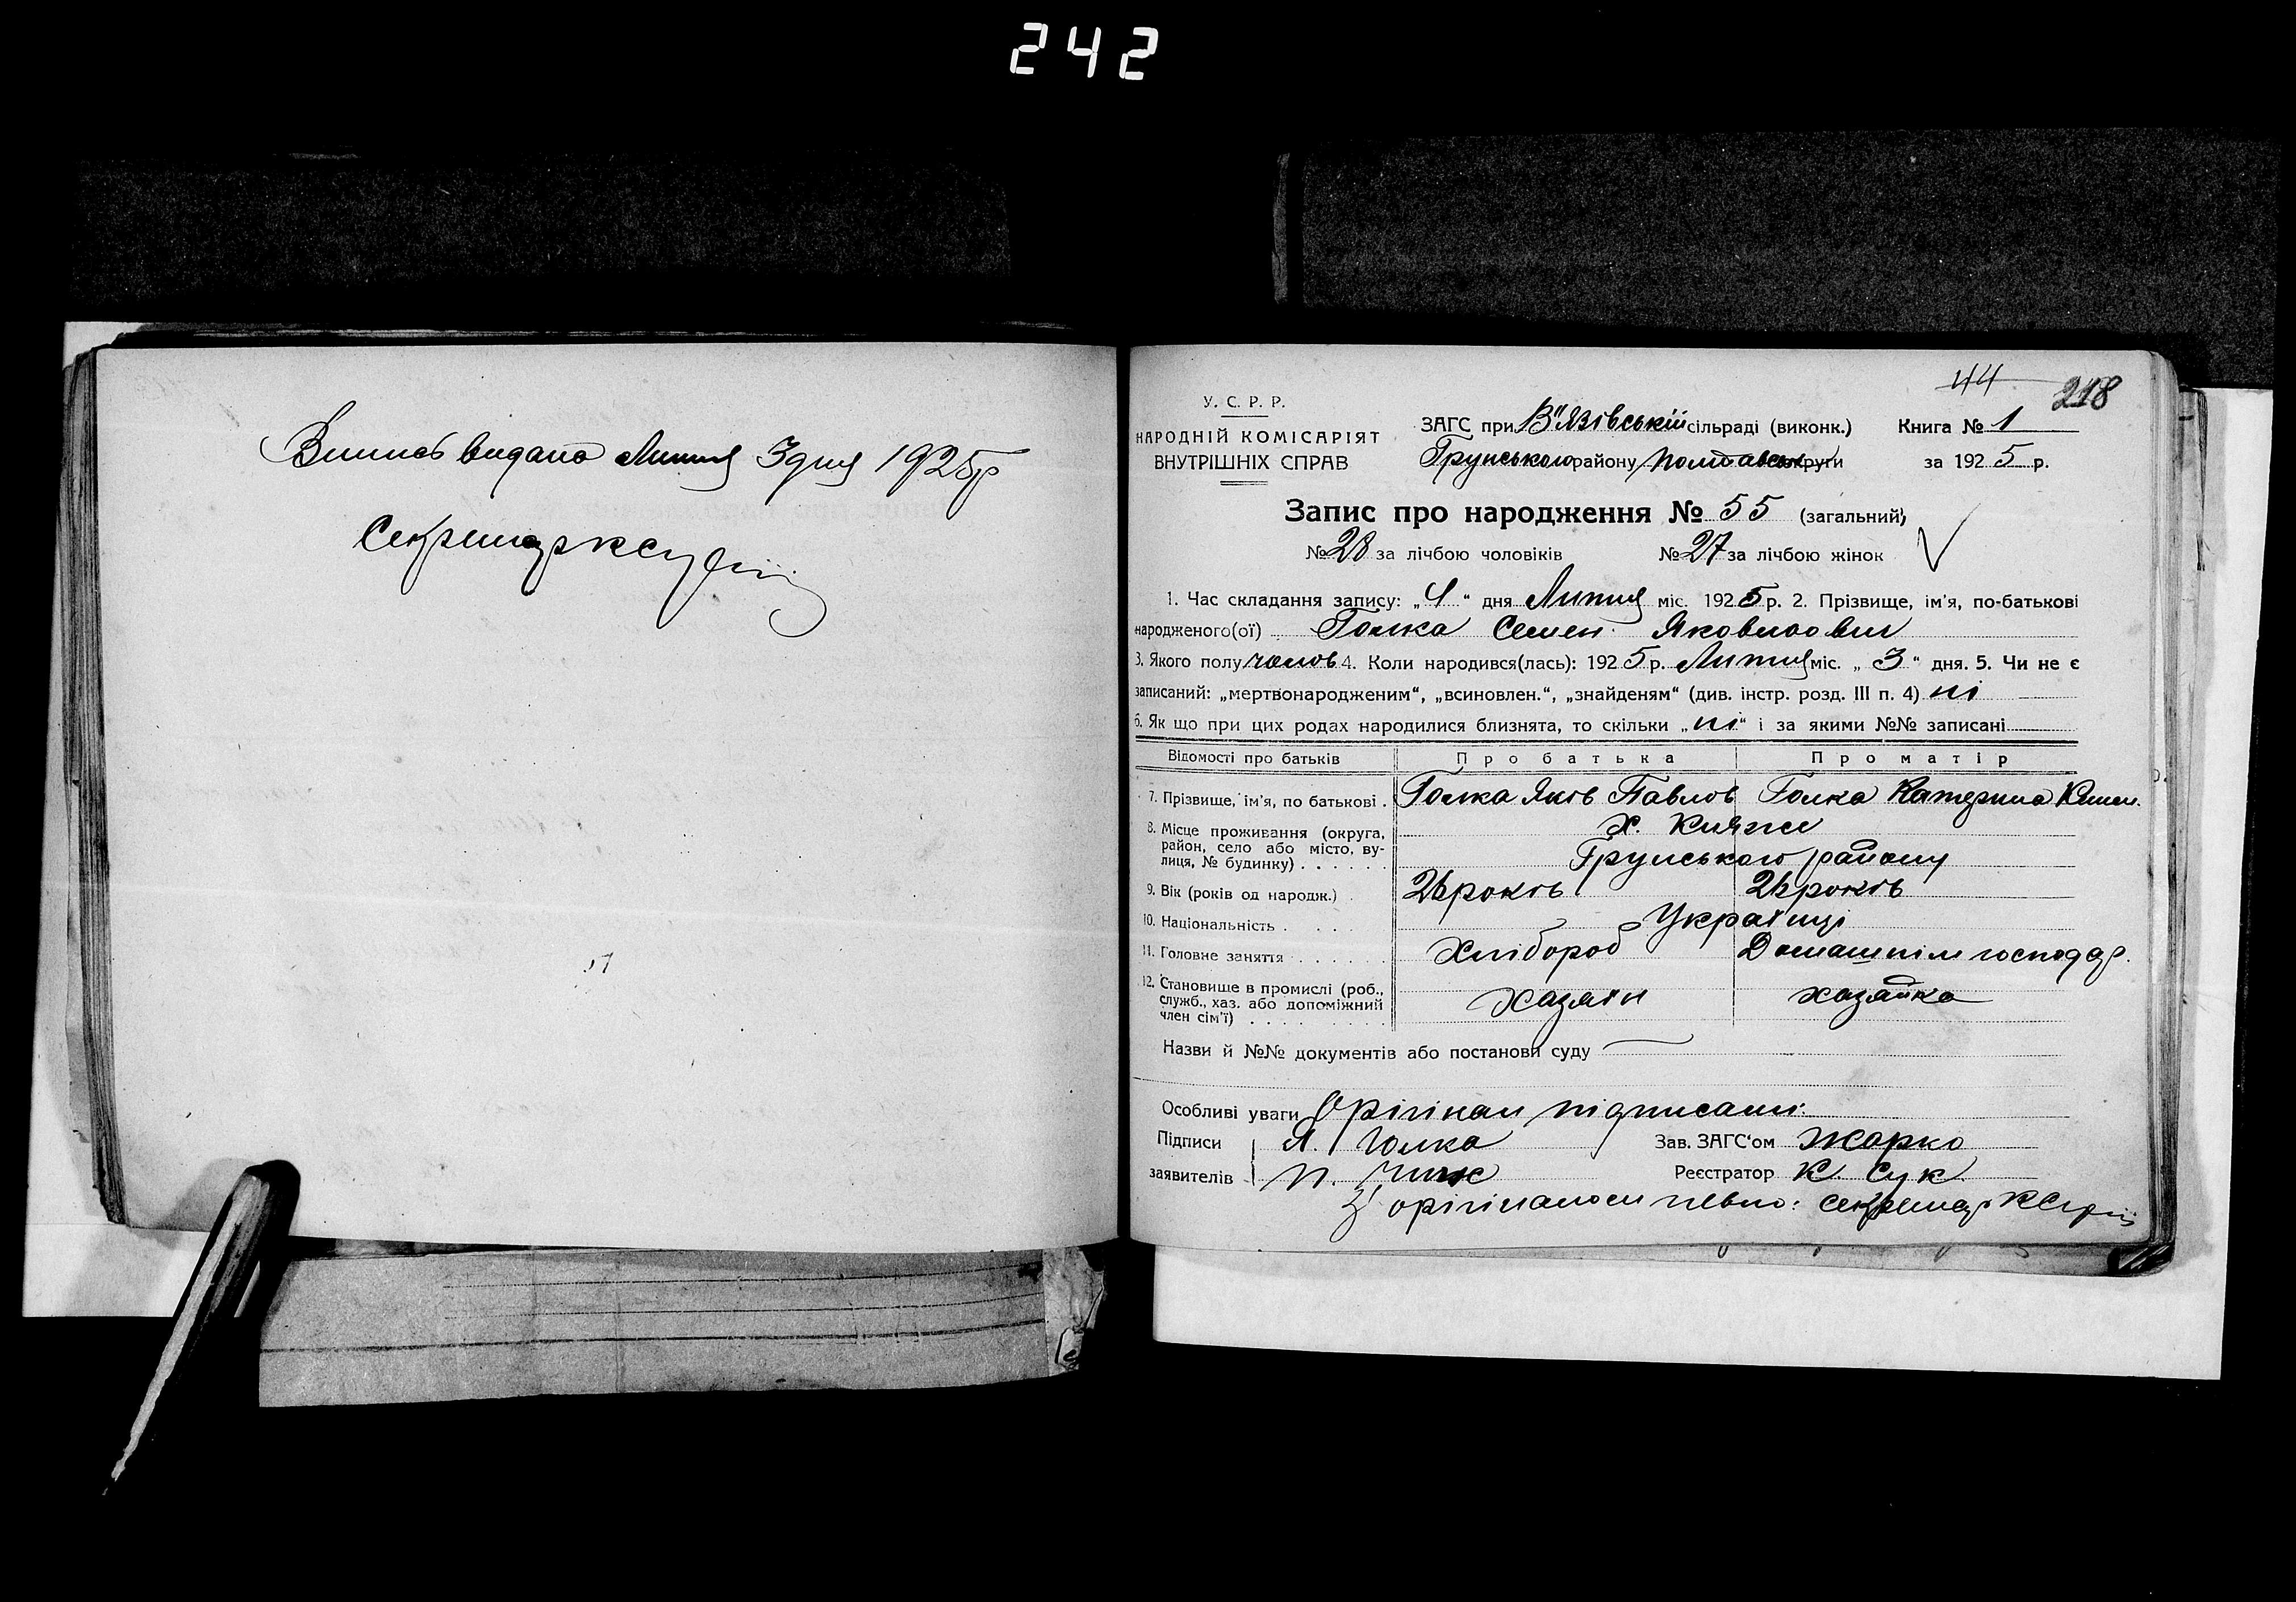 242
Випись видано Липня 3 дня 1925 р
Секретар КСук
44 218
У. С. Р. Р.
НАРОДНІЙ КОМІСАРІЯТ
ВНУТРІШНІХ СПРАВ
ЗАГС при В"язівській сільраді (виконк.) Книга № 1
Грунського району Полтавськ округи за 1925 р.
Запис про народження № 55 (загальний)
№ 28 за лічбою чоловіків № 27 за лічбою жінок
1. Час складання запису: „4“ дня Липня міс. 1925 р. 2. Прізвище, ім'я, по-батькові
народженого(ої) Голка Семен Яковлович
3. Якого полу чолов 4. Коли народився(лась): 1925 р. Липня міс. „3“ дня. 5. Чи не є
записаний: „мертвонародженим“, „всиновлен.“, „знайденям“ (див. інстр. розд. III п. 4) ні
6. Як що при цих родах народилися близнята, то скільки „ні“ і за якими №№ записані
Відомості про батьків Про батька Про матір
7. Прізвище, ім'я, по батькові . Голка Яків Павлов Голка Катерина
8. Місце проживання (округа, район, село або місто, вулиця, № будинку) . . . . . . х. Княжи
Грунського району
9. Вік (років од народж.) . 26 років 26 років
10. Національність . . . . Українці
11. Головне заняття . . . . . . Хлібороб Домашнім господар.
12. Становище в промислі (роб.,
служб., хаз. або допоміжний
член сім'ї) . . . . . . . . . Хазяїн хазяйка
Назви й №№ документів або постанови суду
Особливі уваги Орігінал підписали:
Підписи Я. Голка Зав. ЗАГС'ом Жарко
заявителів П. Чиж Реєстратор К. Сук
З орігіналом певно: секретар КСук